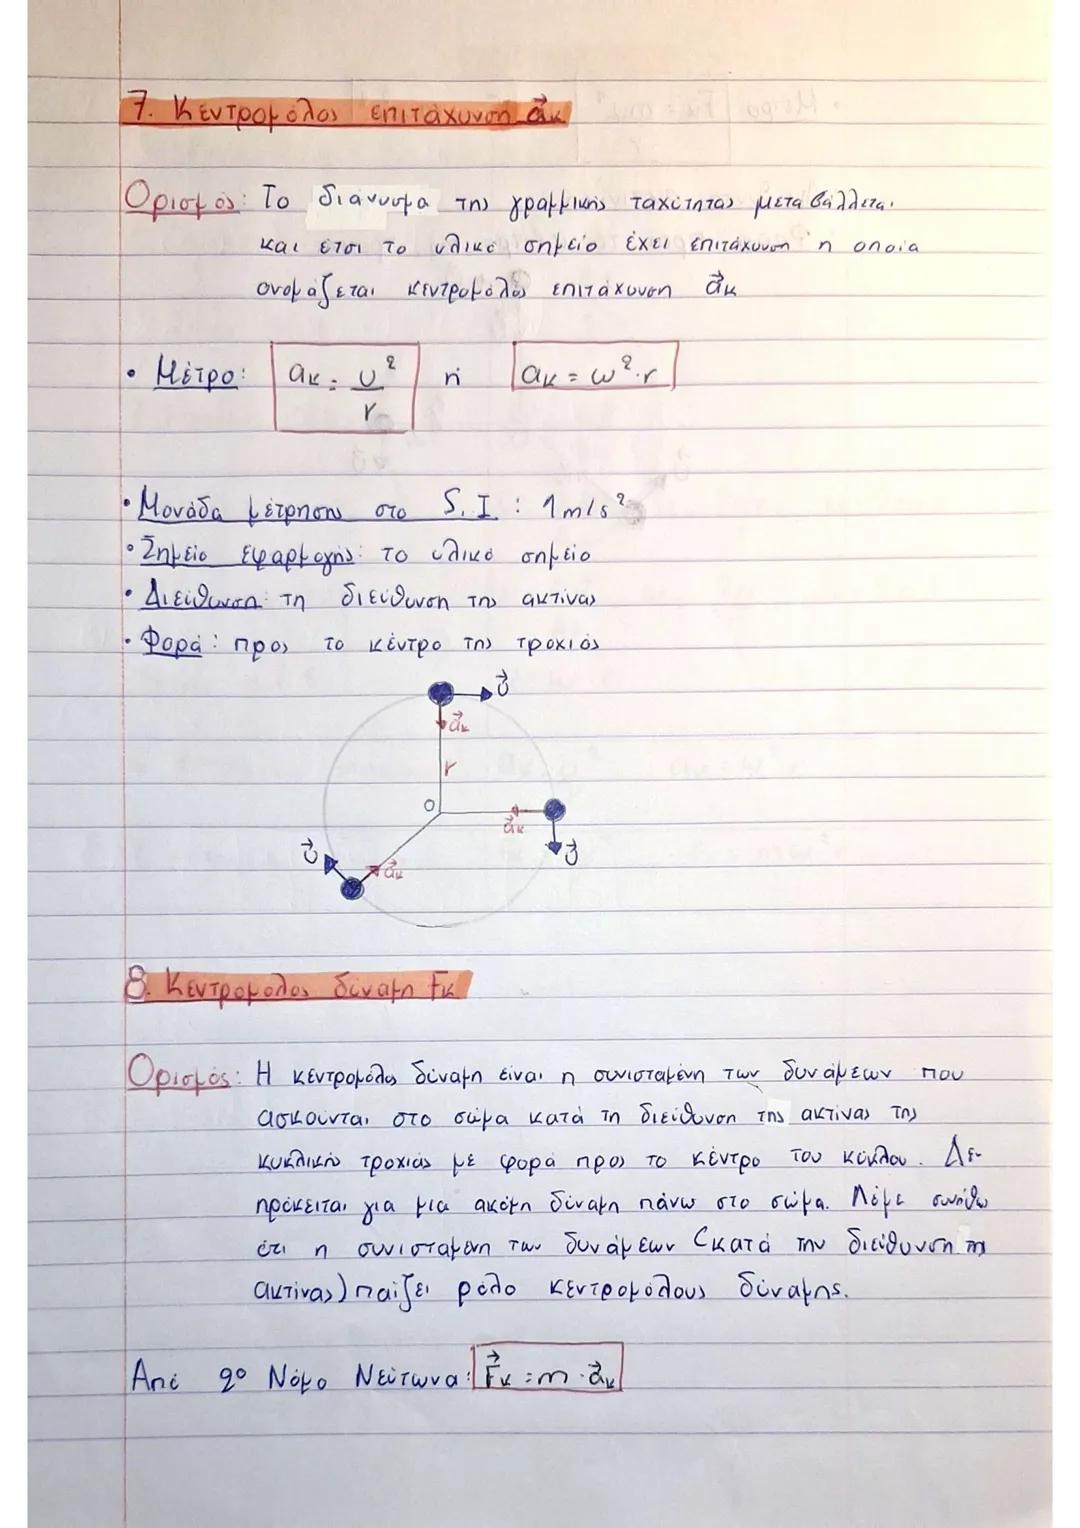 7. Κεντρομόλος επιτάχυνση a⃗κ
Ορισμός: Το διάνυσμα της γραμμικής ταχύτητας μεταβάλλεται
και έτσι το υλικό σημείο έχει επιτάχυνση η οποία
ονομάζεται κεντρομόλος επιτάχυνση a⃗κ
• Μέτρο: aκ = υ²/r ή aκ = ω²·r
• Μονάδα μέτρησης στο S.I : 1m/s²
• Σημείο εφαρμογής: το υλικό σημείο
• Διεύθυνση: τη διεύθυνση της ακτίνας
• Φορά: προς το κέντρο της τροχιάς
υ⃗
a⃗κ
r
O
a⃗κ
υ⃗
υ⃗
a⃗κ
8. Κεντρομόλος δύναμη Fκ
Ορισμός: Η κεντρομόλος δύναμη είναι η συνισταμένη των δυνάμεων που
ασκούνται στο σώμα κατά τη διεύθυνση της ακτίνας της
κυκλικής τροχιάς με φορά προς το κέντρο του κύκλου. Δεν
πρόκειται για μια ακόμη δύναμη πάνω στο σώμα. Λέμε συνήθως
ότι η συνισταμένη των δυνάμεων (κατά την διεύθυνση της
ακτίνας) παίζει ρόλο κεντρομόλους δύναμης.
Από 2º Νόμο Νεύτωνα: F⃗κ = m · a⃗κ